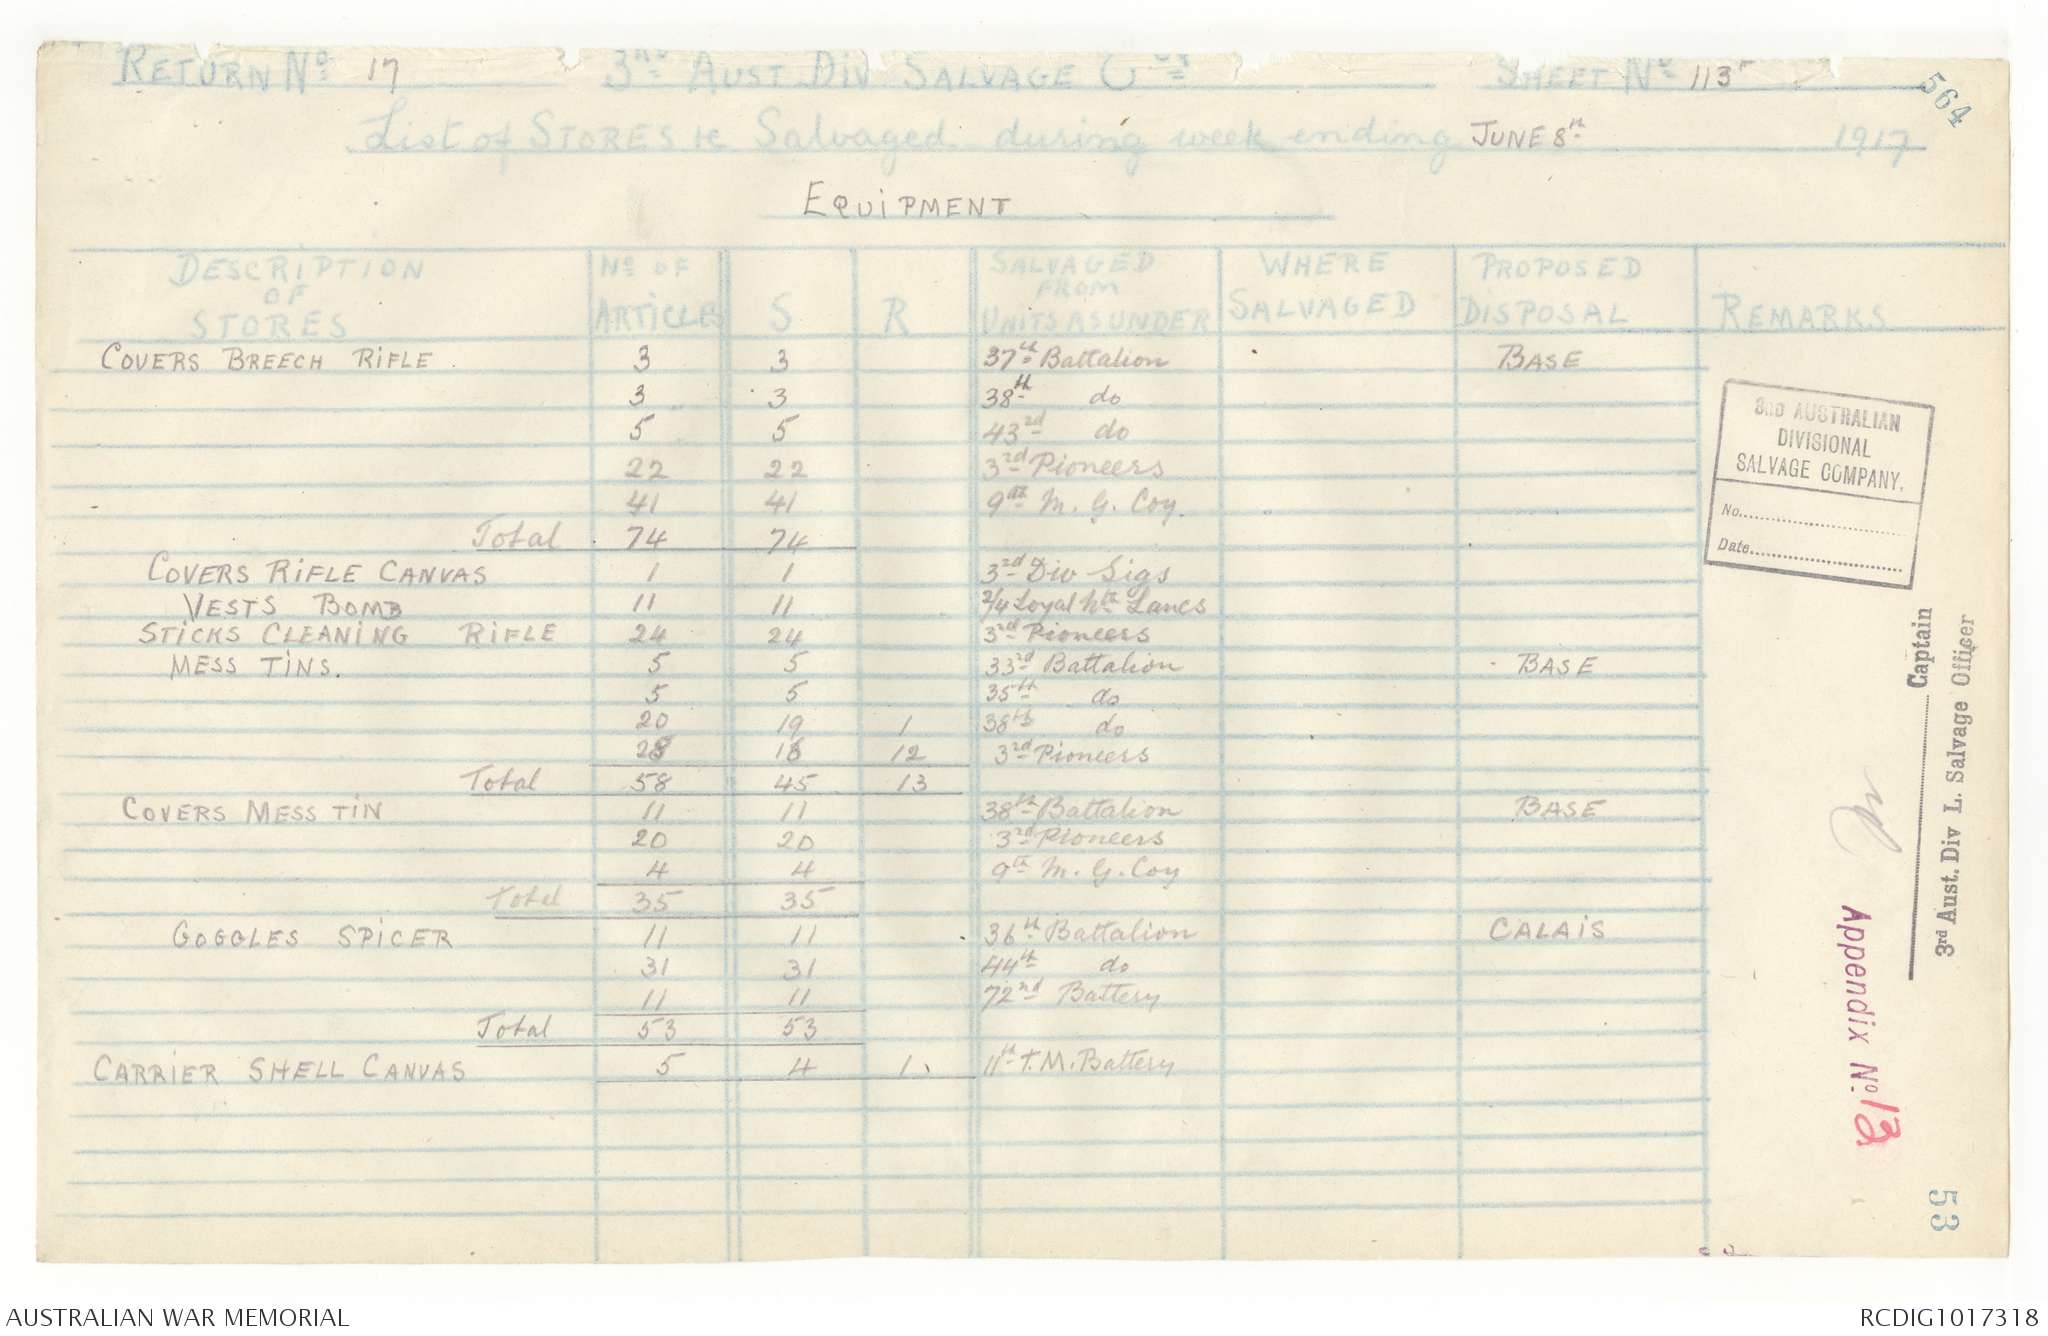 RETURN No 17 3rd AUST DIV SALVAGE Coy SHEET No 113
564
List of STORES &c Salvaged during week ending JUNE 8th 1917
EQUIPMENT
DESCRIPTION OF STORES No OF ARTICLES S R SALVAGED FROM UNITS AS UNDER WHERE SALVAGED PROPOSED DISPOSAL REMARKS
COVERS BREECH RIFLE 3 3 37th Battalion BASE
3 3 38th do
5 5 43rd do
22 22 3rd Pioneers
41 41 9th M. G. Coy.
Total 74 74
COVERS RIFLE CANVAS 1 1 3rd Div Sigs
VESTS BOMB 11 11 2/4 Loyal Nth Lancs
STICKS CLEANING RIFLE 24 24 3rd Pioneers
MESS TINS. 5 5 33rd Battalion BASE
5 5 35th do
20 19 1 38th do
28 16 12 3rd Pioneers
Total 58 45 13
COVERS MESS TIN 11 11 38th Battalion BASE
20 20 3rd Pioneers
4 4 9th M. G. Coy
Total 35 35
GOGGLES SPICER 11 11 36th Battalion CALAIS
31 31 44th do
11 11 72nd Battery
Total 53 53
CARRIER SHELL CANVAS 5 4 1 11th T.M. Battery
3RD AUSTRALIAN
DIVISIONAL
SALVAGE COMPANY.
No.
Date
Captain
3rd Aust. Div L. Salvage Officer
Appendix No. 13
53
AUSTRALIAN WAR MEMORIAL RCDIG1017318